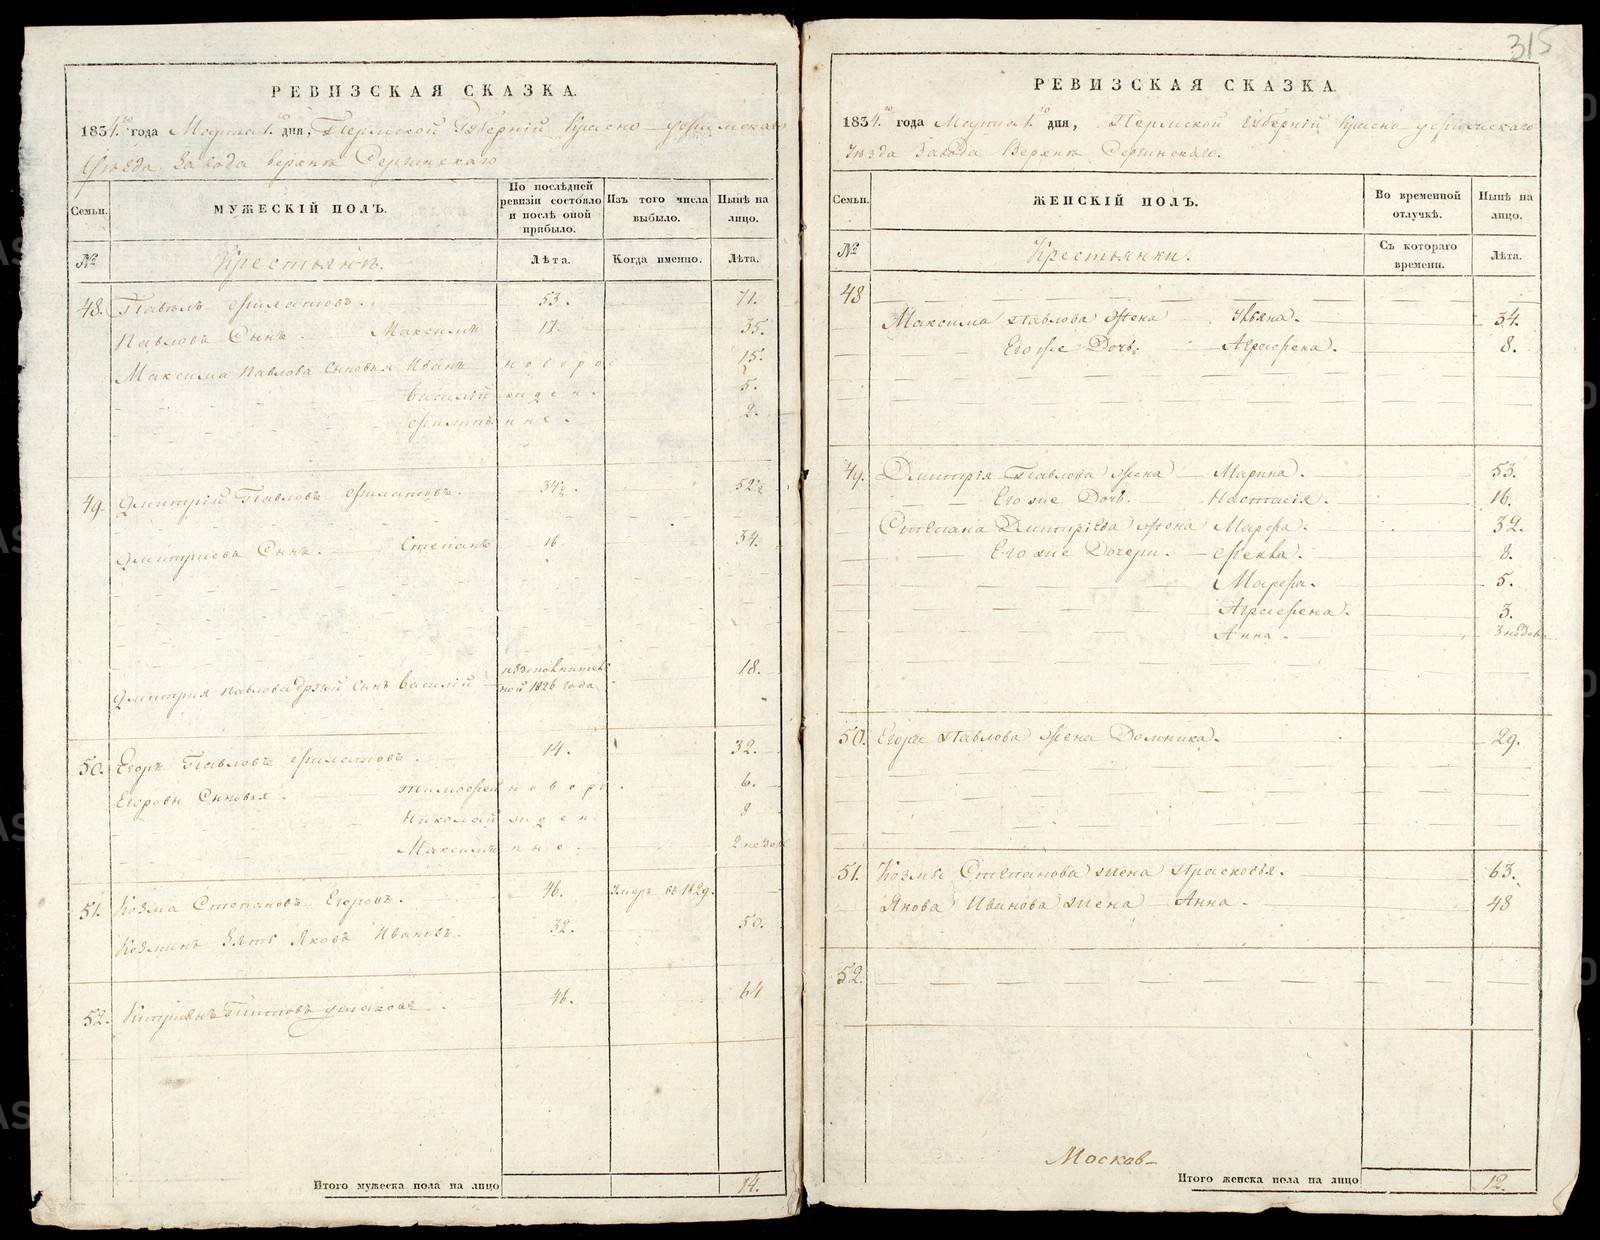 315
РЕВИЗСКАЯ СКАЗКА.
1834го года Марта 1го дня, Пермской Губерніи Красно-уфимскаго
Уѣзда Завода верхнъ Сергинскаго
Семьи.
МУЖЕСКІЙ ПОЛЪ.
По послѣдней ревизіи состояло и послѣ оной прибыло.
Изъ того числа выбыло.
Нынѣ на лицо.
№
Крестьянъ.
Лѣта.
Когда именно.
Лѣта.
48. Павелъ Филатовъ. 53. 71.
Павлова Сынъ Максимъ 17. 35.
Максима Павлова Сыновья Иванъ новоро 15.
Василій жден. 5.
Филипъ ные. 2.
49. Дмитрій Павловъ Филатовъ. 34½. 52½
Дмитріева Сынъ. Степанъ 16 34.
Дмитрія Павлова другой сынъ Василій
ной 1826 года 18.
50. Егоръ Павловъ Филатовъ. 14. 32.
Егоровы Сыновья. Тимофей новоро. 6.
Николай жден. 8
Максимъ ные. 2 недели
51. Козма Степановъ Егоровъ. 46. Умеръ въ 1829.
Козминъ Зять Яковъ Ивановъ. 32. 50.
52. Титовъ 46. 64
Итого мужеска пола на лицо 14.
РЕВИЗСКАЯ СКАЗКА.
1834го года Марта 1го дня, Пермской Губерніи Красно-уфимскаго
Уѣзда Завода Верхнъ Сергинскаго.
Семьи.
ЖЕНСКІЙ ПОЛЪ.
Во временной отлучкѣ.
Нынѣ на лицо.
№
Крестьянки.
Съ котораго времени.
Лѣта.
48
Максима Павлова Жена Ульяна. 34.
Его же Дочь Аграфена. 8.
49. Дмитрія Павлова Жена Марина. 53.
Его же Дочь. Настасія. 16.
Степана Дмитріева Жена Марфа. 32.
Его же Дочери. Фекла. 8.
Марфа. 5.
Аграфена. 3.
Анна. 3 недели
50. Егора Павлова Жена Домника. 29.
51. Козмы Степанова жена Прасковья. 63.
Якова Иванова жена Анна. 48
52.
Москов-
Итого женска пола на лицо 12.